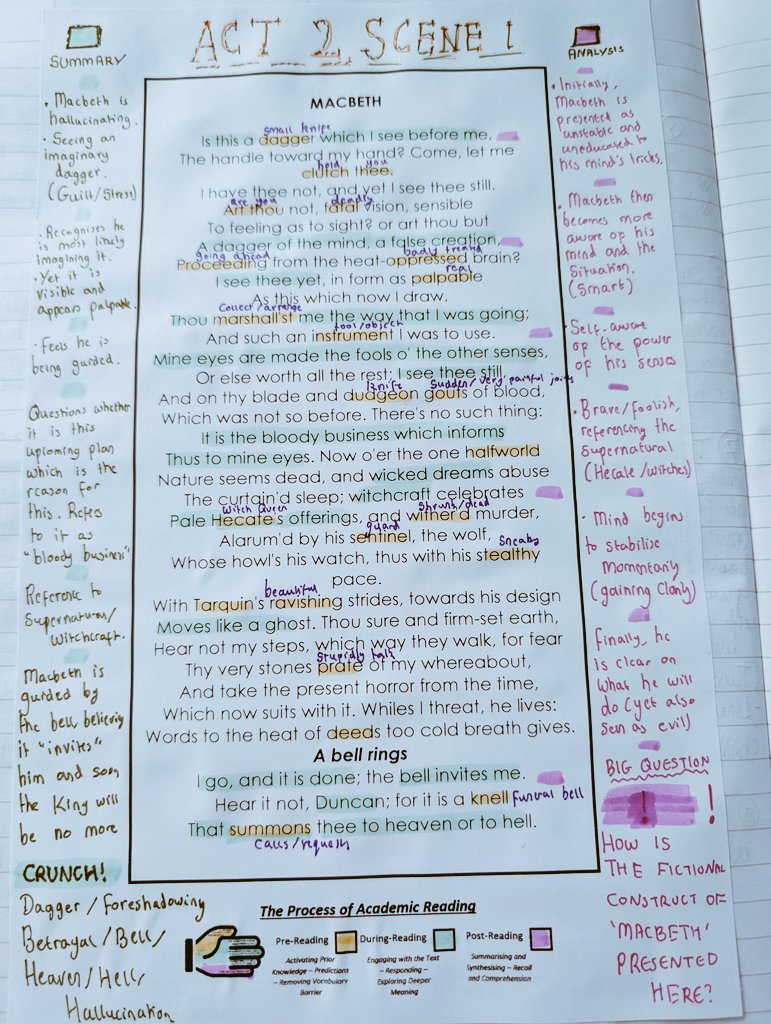 ACT 2, SCENE 1
SUMMARY
• Macbeth is
hallucinating.
• Seeing an
imaginary
dagger.
(Guilt/Stress)
• Recognises he
is most likely
imagining it.
• Yet it is
visible and
appears palpable.
• Feels he is
being guided.
Questions whether
it is this
upcoming plan
which is the
reason for
this. Refers
to it as
"bloody business"
Reference to
Supernatural/
Witchcraft.
Macbeth is
guided by
the bell, believing
it "invites"
him and soon
the King will
be no more
CRUNCH!
Dagger/Foreshadowing
Betrayal/Bell/
Heaven/Hell/
Hallucination
MACBETH
small knife
Is this a dagger which I see before me,
The handle toward my hand? Come, let me
hold you
clutch thee.
I have thee not, and yet I see thee still.
are you deadly
Art thou not, fatal vision, sensible
To feeling as to sight? or art thou but
A dagger of the mind, a false creation,
going ahead badly treated
Proceeding from the heat-oppressed brain?
real
I see thee yet, in form as palpable
As this which now I draw.
Collect/arrange
Thou marshall'st me the way that I was going;
tool/object
And such an instrument I was to use.
Mine eyes are made the fools o' the other senses,
Or else worth all the rest; I see thee still,
knife Sudden/very painful joints
And on thy blade and dudgeon gouts of blood,
Which was not so before. There's no such thing:
It is the bloody business which informs
Thus to mine eyes. Now o'er the one halfworld
Nature seems dead, and wicked dreams abuse
The curtain'd sleep; witchcraft celebrates
Witch Queen Shrunk/dead
Pale Hecate's offerings, and wither'd murder,
guard
Alarum'd by his sentinel, the wolf,
Sneaky
Whose howl's his watch, thus with his stealthy
pace.
beautiful
With Tarquin's ravishing strides, towards his design
Moves like a ghost. Thou sure and firm-set earth,
Hear not my steps, which way they walk, for fear
Stupidly talk
Thy very stones prate of my whereabout,
And take the present horror from the time,
Which now suits with it. Whiles I threat, he lives:
Words to the heat of deeds too cold breath gives.
A bell rings
I go, and it is done; the bell invites me.
Hear it not, Duncan; for it is a knell funeral bell
That summons thee to heaven or to hell.
Calls/requests
The Process of Academic Reading
Pre-Reading
Activating Prior
Knowledge – Predictions
– Removing Vocabulary
Barrier
During-Reading
Engaging with the Text
– Responding –
Exploring Deeper
Meaning
Post-Reading
Summarising and
Synthesising – Recall
and Comprehension
ANALYSIS
• Initially,
Macbeth is
presented as
unstable and
uneducated to
his mind's tricks.
• Macbeth then
becomes more
aware of his
mind and the
situation.
(Smart)
• Self-aware
of the power
of his senses
• Brave/foolish,
referencing the
supernatural
(Hecate/witches)
• Mind begins
to stabilise
momentarily
(gaining clarity)
Finally, he
is clear on
what he will
do (yet also
seen as evil)
BIG QUESTION
!
HOW IS
THE FICTIONAL
CONSTRUCT OF
'MACBETH'
PRESENTED
HERE?